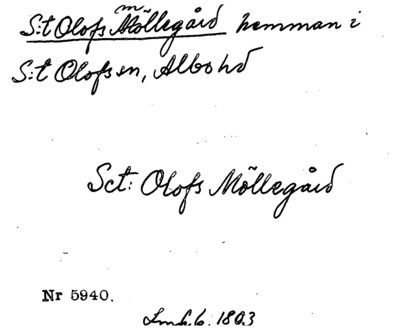 m
S:t Olofs Möllegård hemman i
S:t Olofs sn, Albo hd
Sct: Olofs Möllegård
Nr 5940.
Lmh.b. 1803